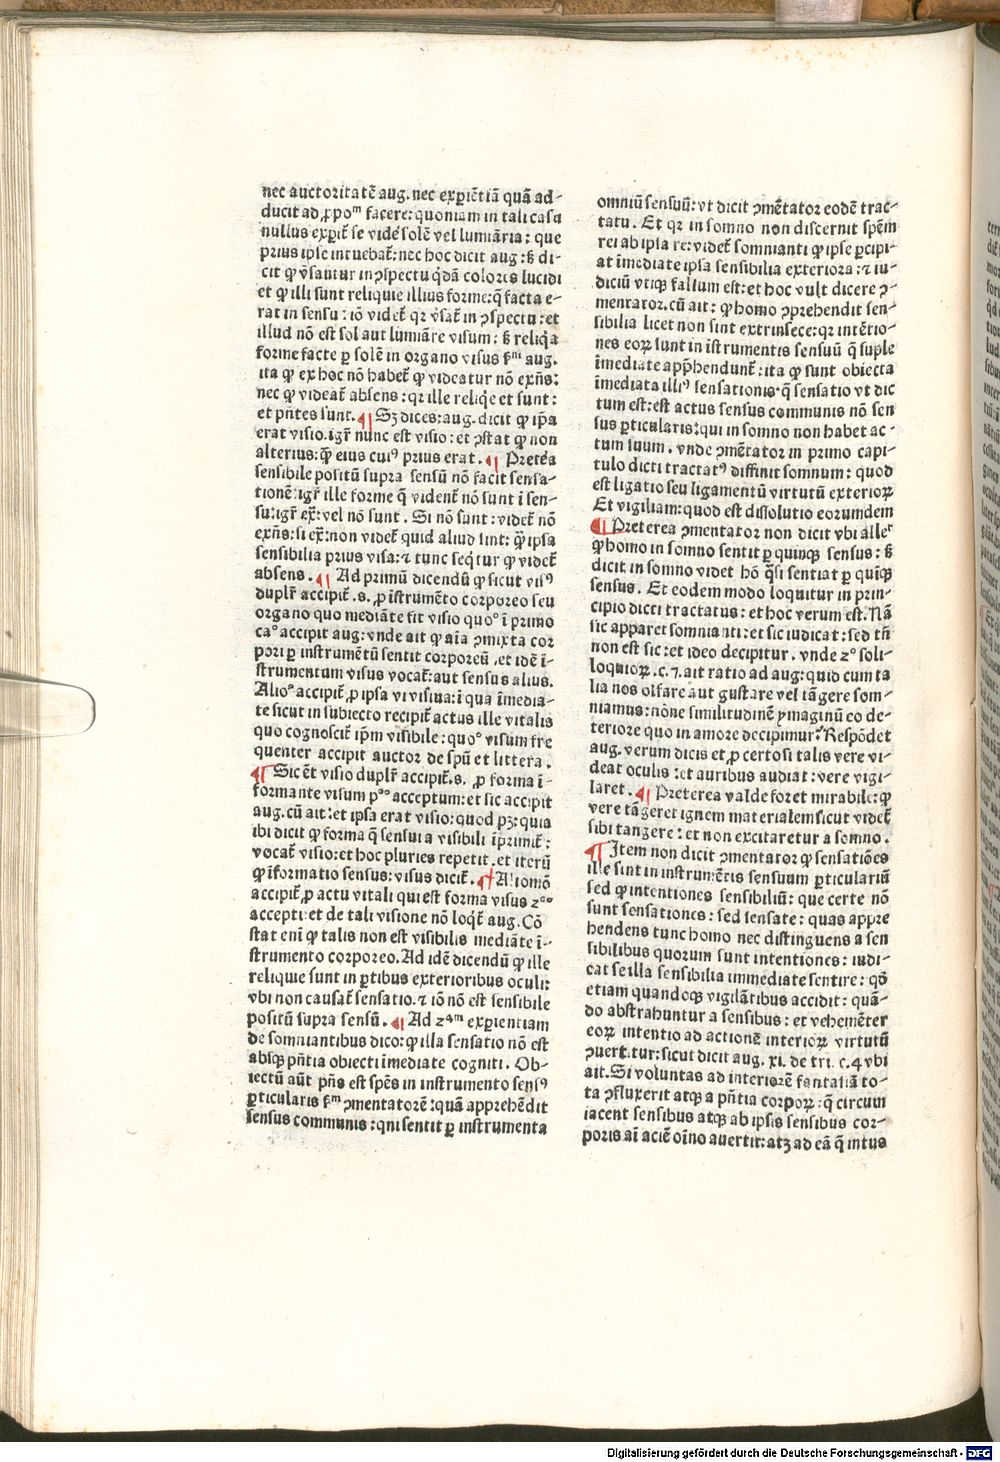 nec auctoritatē aug. nec exꝑiētiā quā ad-
ducit ad ꝓpoᵐ facere: quoniam in tali casu
nullus exꝑit᷑ se vidē solē vel lumīaria: que
prius ipse intuebat᷑: nec hoc dicit aug: ꝫ di-
cit ꝙ v̓sātur in ↄspectu q̄dā coloris lucidi
et ꝙ illi sunt reliquie illius forme: q̄ facta e-
rat in sensu: iō videt᷑ qꝛ v̓sāt᷑ in ↄspectu: et
illud nō est sol aut lumiāre visum: ꝫ reliq̄a
forme facte ꝑ solē in organo visus ẜᵐ aug.
ita ꝙ ex hoc nō habet᷑ ꝙ videatur nō exn̄s:
nec ꝙ videat᷑ absens: qꝛ ille reliqe et sunt:
et pn̄tes sunt. ¶ Sꝫ dices: aug. dicit ꝙ ip̄a
erat visio. igr̄ nunc est visio: et ↄstat ꝙ non
alterius: q̄ꝫ eius cuiꝰ prius erat. ¶ Pretea
sensibile positū supra sensū nō facit sensa-
tionē: igr̄ ille forme q̄ vident᷑ nō sunt ī sen-
su: igr̄ ex̄: vel nō sunt. Si nō sunt: videt᷑ nō
exn̄s: si ex̄: non videt᷑ quid aliud sint: q̄ꝫ ipsa
sensibilia prius visa: ⁊ tunc seq̄tur ꝙ videt᷑
absens. ¶ Ad primū dicendū ꝙ sicut visꝰ
duplr̄ accipit᷑ .s. ꝓ īstrumēto corporeo seu
organo quo mediāte fit visio quoº ī primo
caº accipit aug: vnde ait ꝙ aīa ↄmixta cor
pori ꝑ instrumētū sentit corporeū .et idē ī-
strumentum visus vocat᷑: aut sensus alius.
Alioº accipit᷑ ꝓ ipsa vi visiua: ī qua īmedia-
te sicut in subiecto recipit᷑ actus ille vitalis
quo cognoscit᷑ ip̄m visibile: quoº visum fre
quenter accipit auctor de spū et littera.
¶ Sic ēt visio duplr̄ accipit᷑ .s. ꝓ forma ī-
formante visum pºº acceptum: et sic accipit
aug. cū ait: et ipsa erat visio: quod pꝫ: quia
ibi dicit ꝙ forma q̄ sensui a visibili īprimit᷑:
vocat᷑ visio: et hoc pluries repetit .et iterū
ꝙ īformatio sensus: visus dicit᷑. ¶ Aliomō
accipit᷑ ꝓ actu vitali qui est forma visus 2ºº
accepti: et de tali visione nō loqt᷑ aug. Cō
stat enī ꝙ talis non est visibilis mediāte ī-
strumento corporeo. Ad idē dicendū ꝙ ille
reliquie sunt in ꝑtibus exterioribus oculi:
vbi non causat᷑ sensatio. ⁊ iō nō est sensibile
positū supra sensū. ¶ Ad 2ᵃᵐ exꝑientiam
de somniantibus dico: ꝙ illa sensatio nō est
absqꝫ pn̄tia obiecti īmediate cogniti. Ob-
iectū aūt pn̄s est spēs in instrumento sensꝰ
ꝑticularis ẜᵐ ↄmentatorē: quā apprehēdit
sensus communis: qui sentit ꝑ instrumenta
omniū sensuū: vt dicit ↄmētator eodē trac-
tatu. Et qꝛ in somno non discernit spēm
rei ab ipsa re: videt᷑ somnianti ꝙ ipse ꝑcipi-
at īmediate ipsa sensibilia exteriora: ⁊ iu-
diciū vtiqꝫ falsum est: et hoc vult dicere ↄ-
mentator. cū ait: ꝙ homo ↄprehendit sen-
sibilia licet non sint extrinsece: qꝛ intētio-
nes eoꝝ sunt in īstrumentis sensuū q̄ suple
īmediate app̄hendunt᷑: ita ꝙ sunt obiecta
īmediata illiꝰ sensationis. q̄ sensatio vt dic
tum est: est actus sensus communis nō sen
sus ꝑticularis: qui in somno non habet ac-
tum suum. vnde ↄmētator in primo capi-
tulo dicti tractatꝰ diffinit somnum: quod
est ligatio seu ligamentū virtutū exterioꝝ
Et vigiliam: quod est dissolutio eorumdem
¶ Preterea ↄmentator non dicit vbi allᵉʳ
ꝙ homo in somno sentit ꝑ quinqꝫ sensus: ꝫ
dicit in somno videt᷑ hō q̄si sentiat ꝑ quīqꝫ
sensus. Et eodem modo loquitur in prin-
cipio dicti tractatus: et hoc verum est. Nā
sic apparet somnianti: et sic iudicat: sed tn̄
non est sic: et ideo decipitur. vnde 2º soli-
loquioꝝ .c. 7. ait ratio ad aug: quid cum ta
lia nos olfare aut gustare vel tāgere som-
niamus: nōne similitudinē ymaginū eo de-
teriore quo in amore decipimur? Respōdet
aug. verum dicis et ꝓ certo si talis vere vi-
deat oculis: et auribus audiat: vere vigi-
laret. ¶ Preterea valde foret mirabile: ꝙ
vere tāgeret ignem materialem sicut videt᷑
sibi tangere: et non excitaretur a somno.
¶ Item non dicit ↄmentator ꝙ sensatiōes
ille sint in instrumētis sensuum ꝑticulariū
sed ꝙ intentiones sensibiliū: que certe nō
sunt sensationes: sed sensate: quas appre
hendens tunc homo nec distinguens a sen
sibilibus quorum sunt intentiones: iudi-
cat se illa sensibilia immediate sentire: qō
etiam quandoqꝫ vigilātibus accidit: quā-
do abstrahuntur a sensibus: et vehemēter
eoꝝ intentio ad actionē interioꝝ virtutū
ↄuert.tur: sicut dicit aug. xi. de tri. c. 4 vbi
ait. Si voluntas ad interiorē fantasiā to-
ta ↄfluxerit atqꝫ a pn̄tia corpoꝝ: q̄ circum
iacent sensibus atqꝫ ab ipsis sensibus cor-
poris aī aciē oīno auertit: atqꝫ ad eā q̄ intus
Digitalisierung gefördert durch die Deutsche Forschungsgemeinschaft - DFG